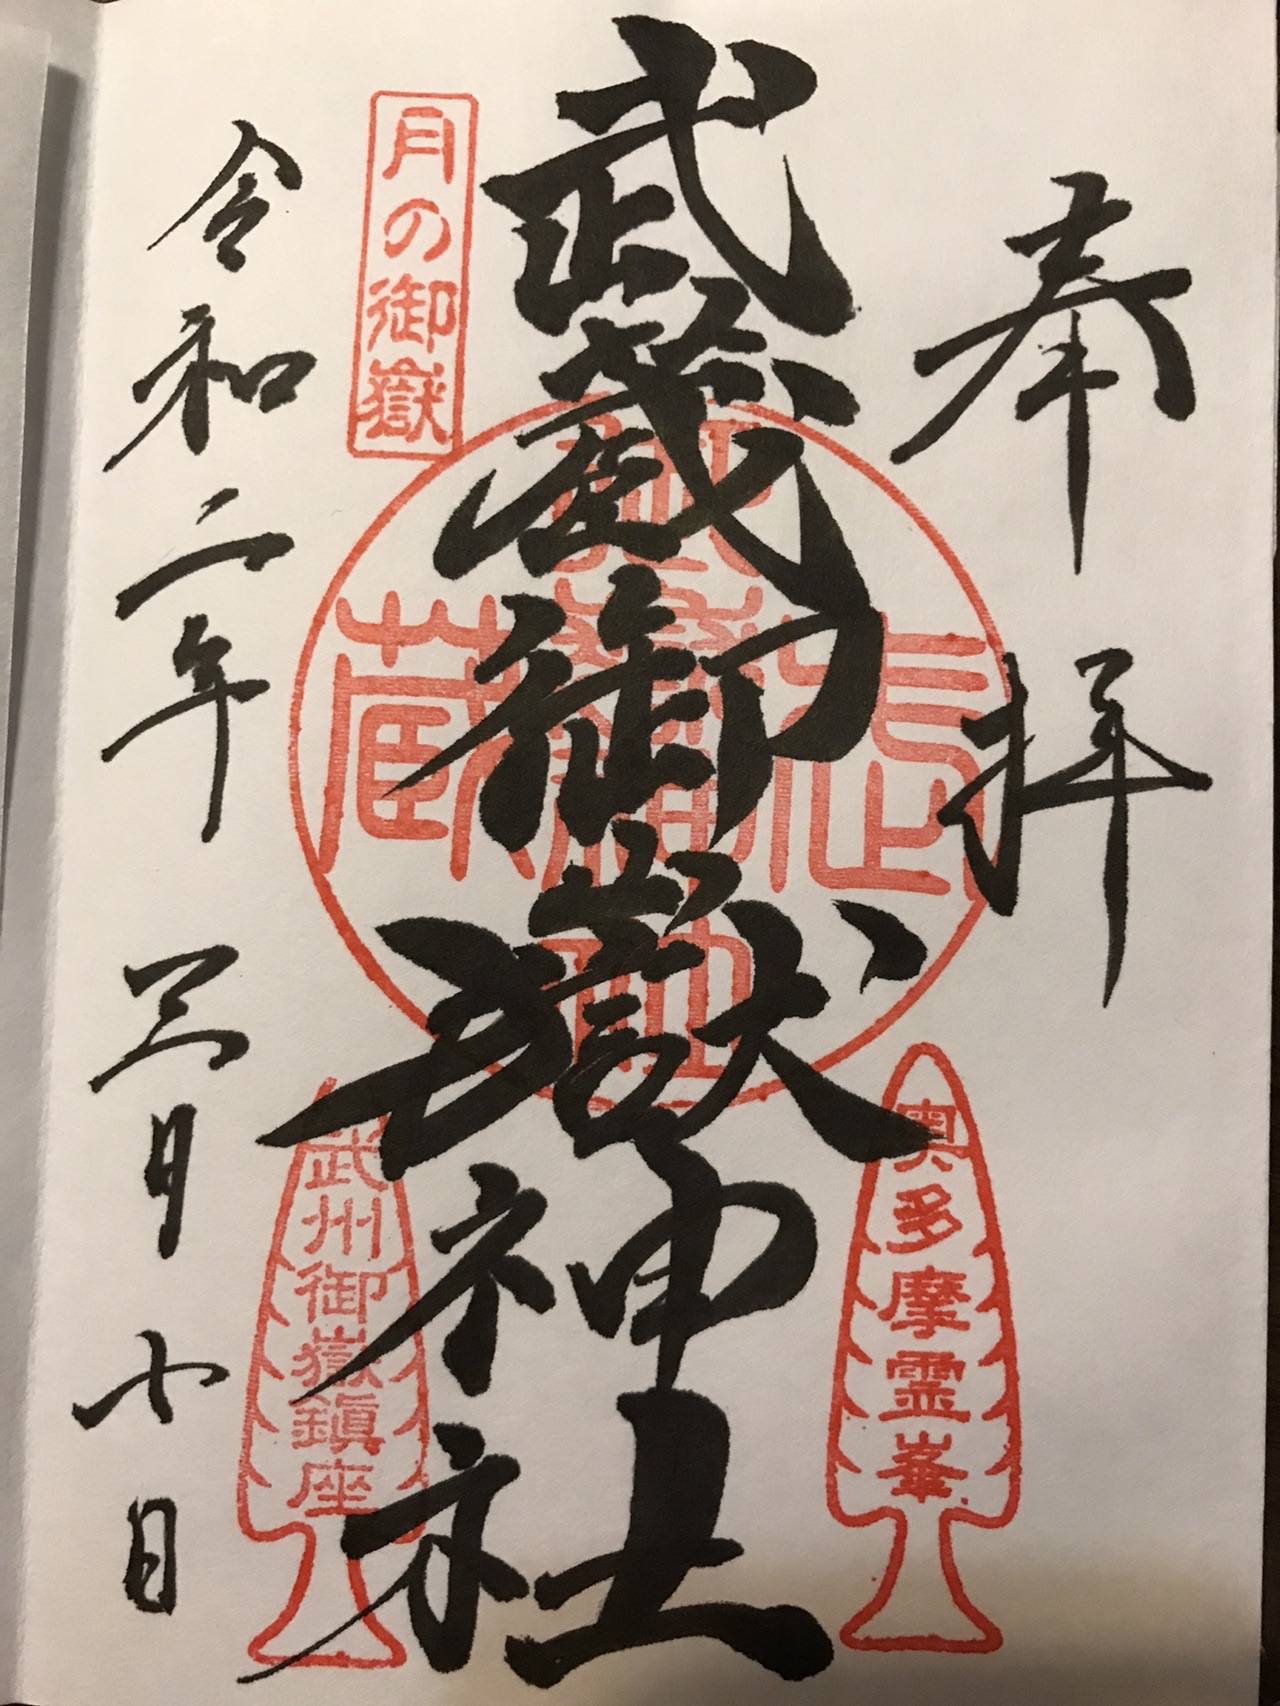 奉拝
奥多摩霊峯
武蔵御嶽神社
月の御嶽
武州御嶽鎮座
令和二年 三月 七日